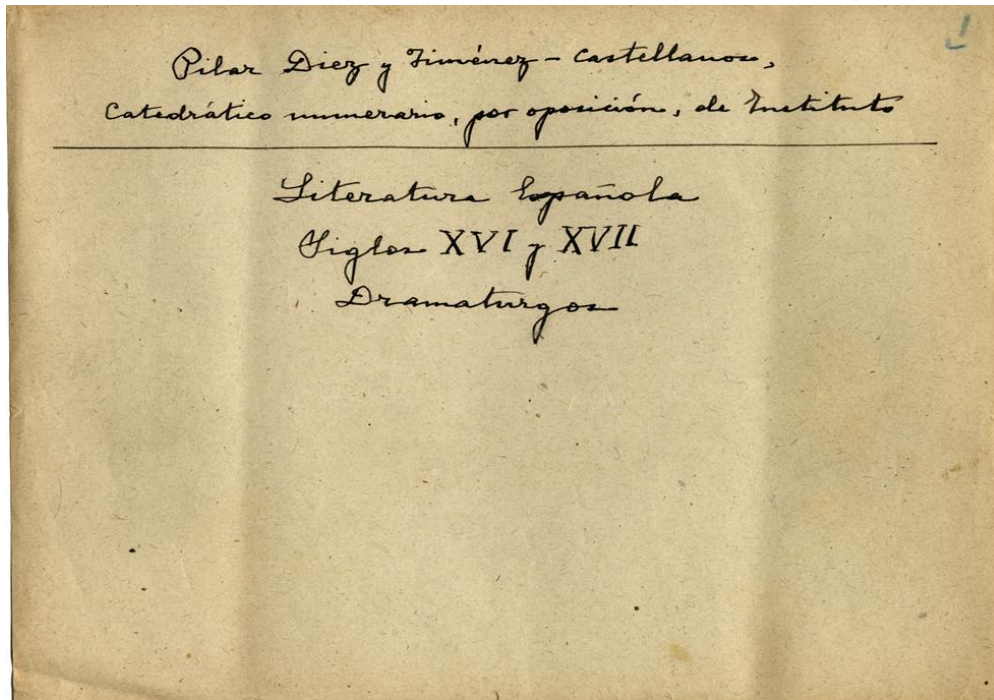 1
Pilar Diez y Jiménez - Castellanos,
Catedrático numerario, por oposición, de Instituto
Literatura Española
Siglos XVI y XVII
Dramaturgos